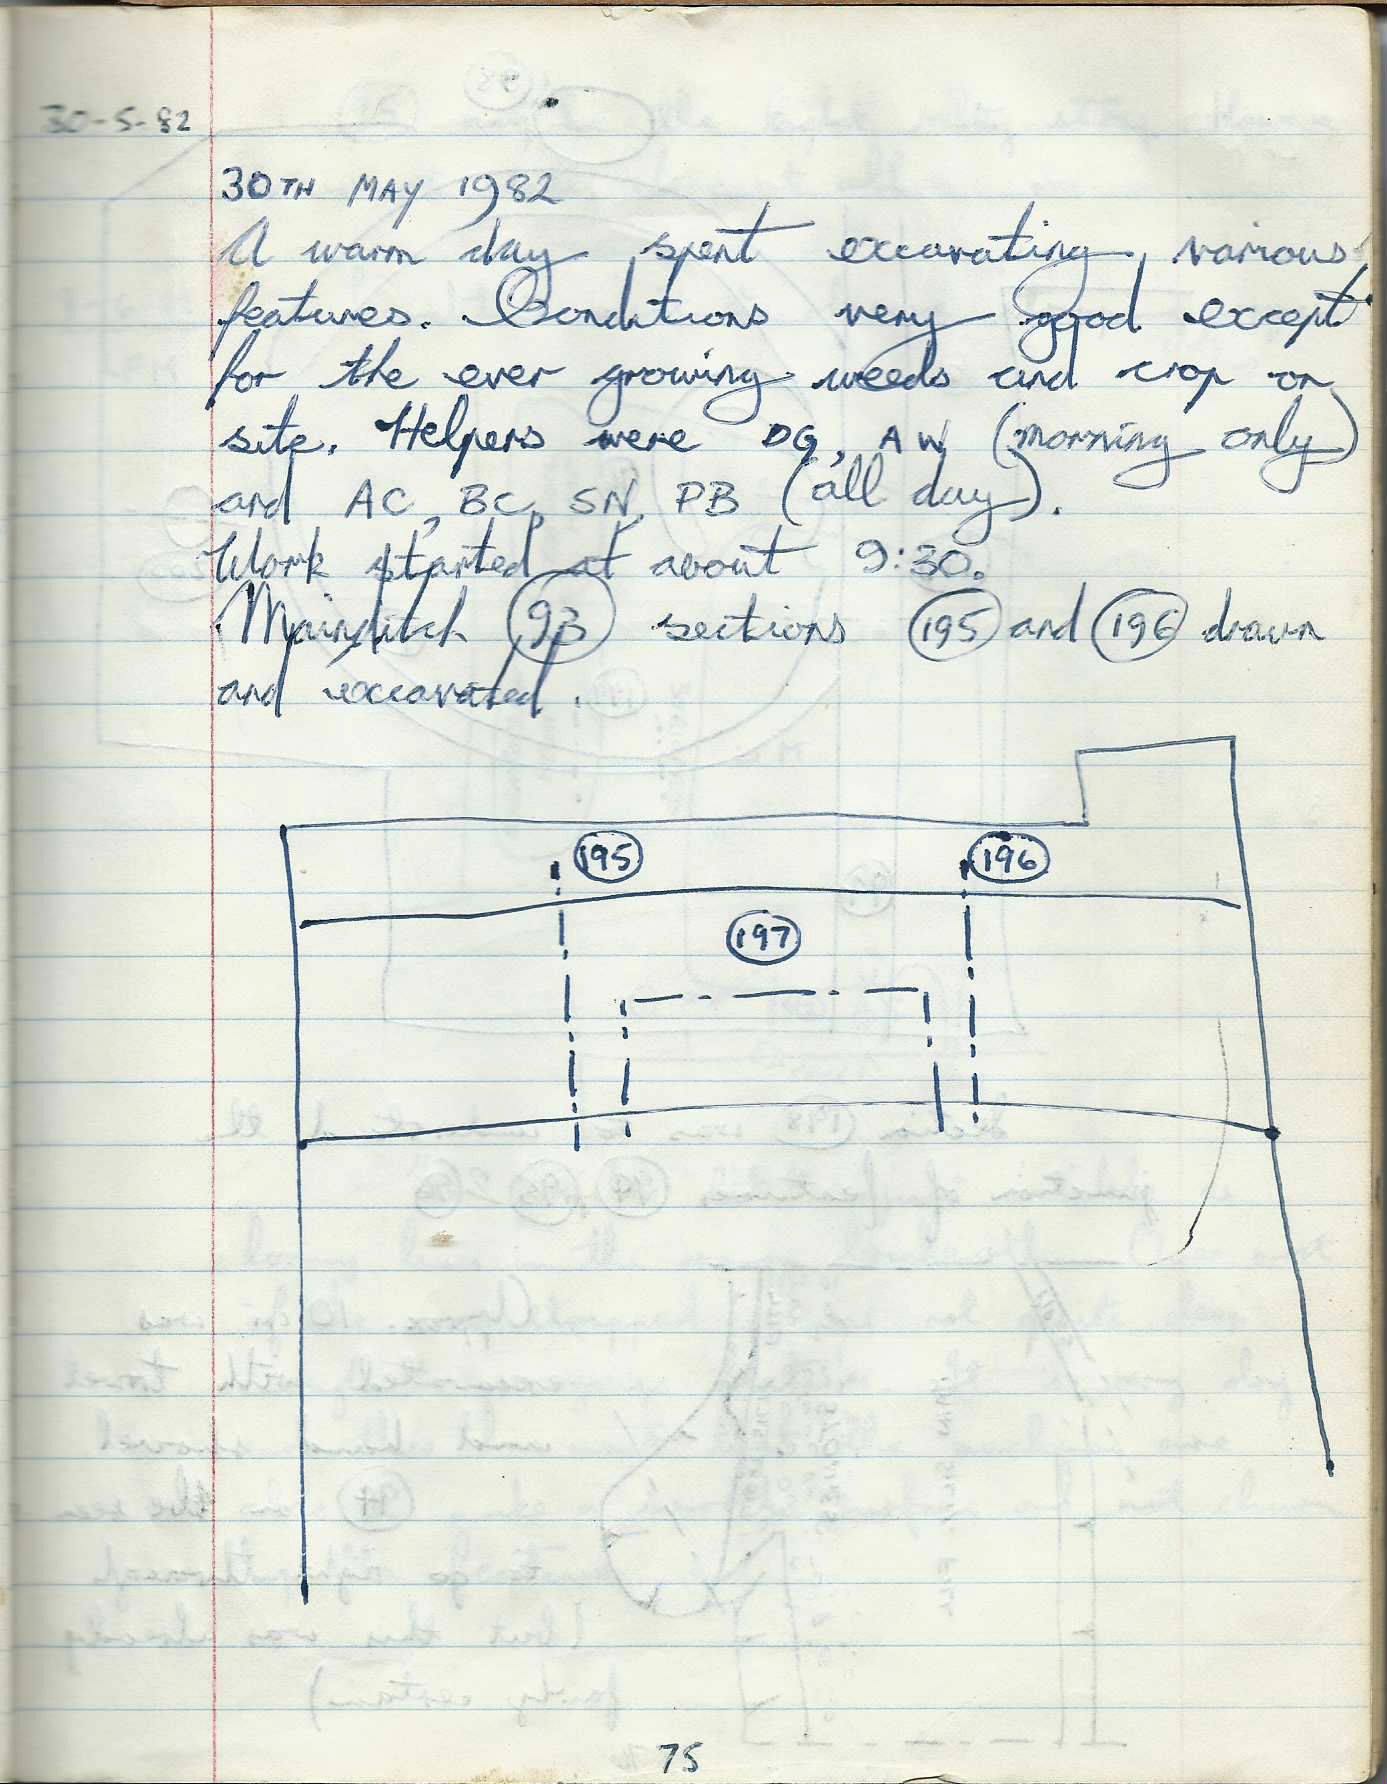 30-5-82
30TH MAY 1982
A warm day spent excavating various
features. Conditions very good except
for the ever growing weeds and crop on
site. Helpers were DG, AW (morning only)
and AC, BC, SN, PB (all day).
Work started at about 9:30.
Mainditch 93 sections 195 and 196 drawn
and excavated.
195 196
197
75